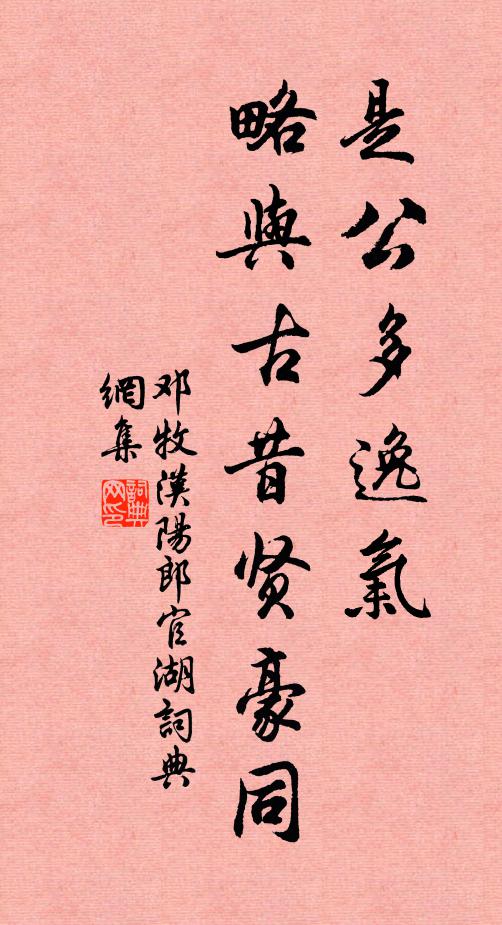 是公多逸氣
略與古昔贤豪同
邓牧漢陽郎官湖詞典
網集
詞典
网印